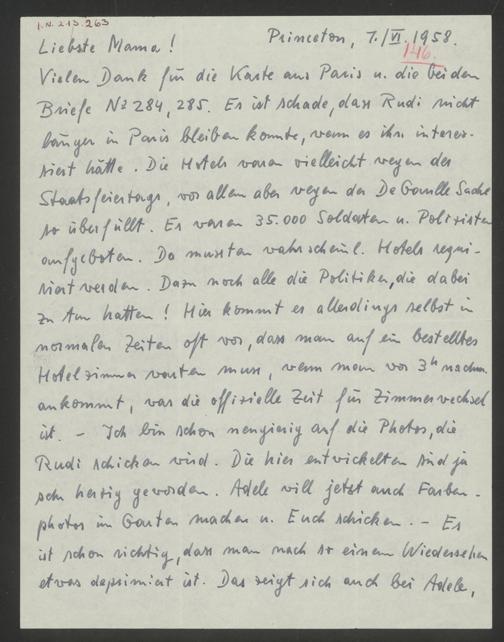 I.N. 213.263
Liebste Mama! Princeton, 7./VI. 1958.
146.
Vielen Dank für die Karte aus Paris u. die beiden
Briefe No 284, 285. Es ist schade, dass Rudi nicht
länger in Paris bleiben konnte, wenn es ihn interes-
siert hätte. Die Hotels waren vielleicht wegen des
Staatsfeiertags, vor allem aber wegen der De Gaulle Sache
so überfüllt. Es waren 35.000 Soldaten u. Polizisten
aufgeboten. Da mussten wahrscheinl. Hotels requi-
riert werden. Dazu noch alle die Politiker, die dabei
zu tun hatten! Hier kommt es allerdings selbst in
normalen Zeiten oft vor, dass man auf ein bestelltes
Hotelzimmer warten muss, wenn man vor 3h nachm.
ankommt, was die offizielle Zeit für Zimmerwechsel
ist. – Ich bin schon neugierig auf die Photos, die
Rudi schicken wird. Die hier entwickelten sind ja
sehr herzig geworden. Adele will jetzt auch Farben-
photos im Garten machen u. Euch schicken. – Es
ist schon richtig, dass man nach so einem Wiedersehen
etwas deprimiert ist. Das zeigt sich auch bei Adele,